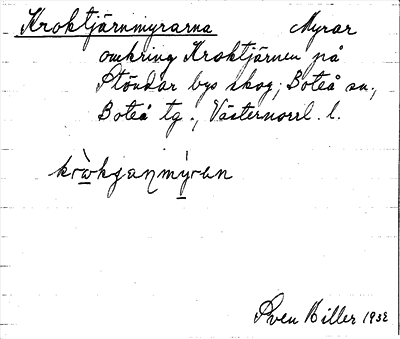 Kroktjärnmyrarna Myrar
omkring Kroktjärnen på
Stöndar bys skog, Boteå sn.,
Boteå tg., Västernorrl. l.
Sven Hiller 1932